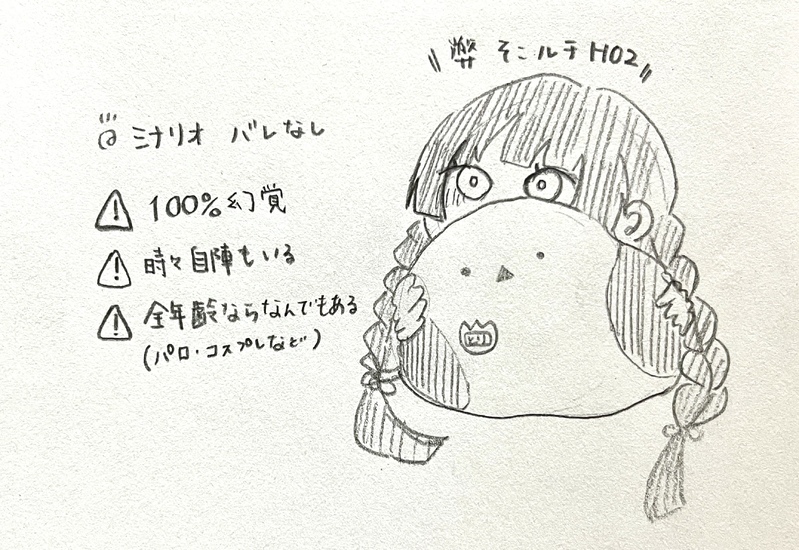 弊 そこルテ HO2
シナリオ バレなし
100%幻覚
時々自陣もいる
全年齢ならなんでもある
(パロ・コスプレなど)
とり